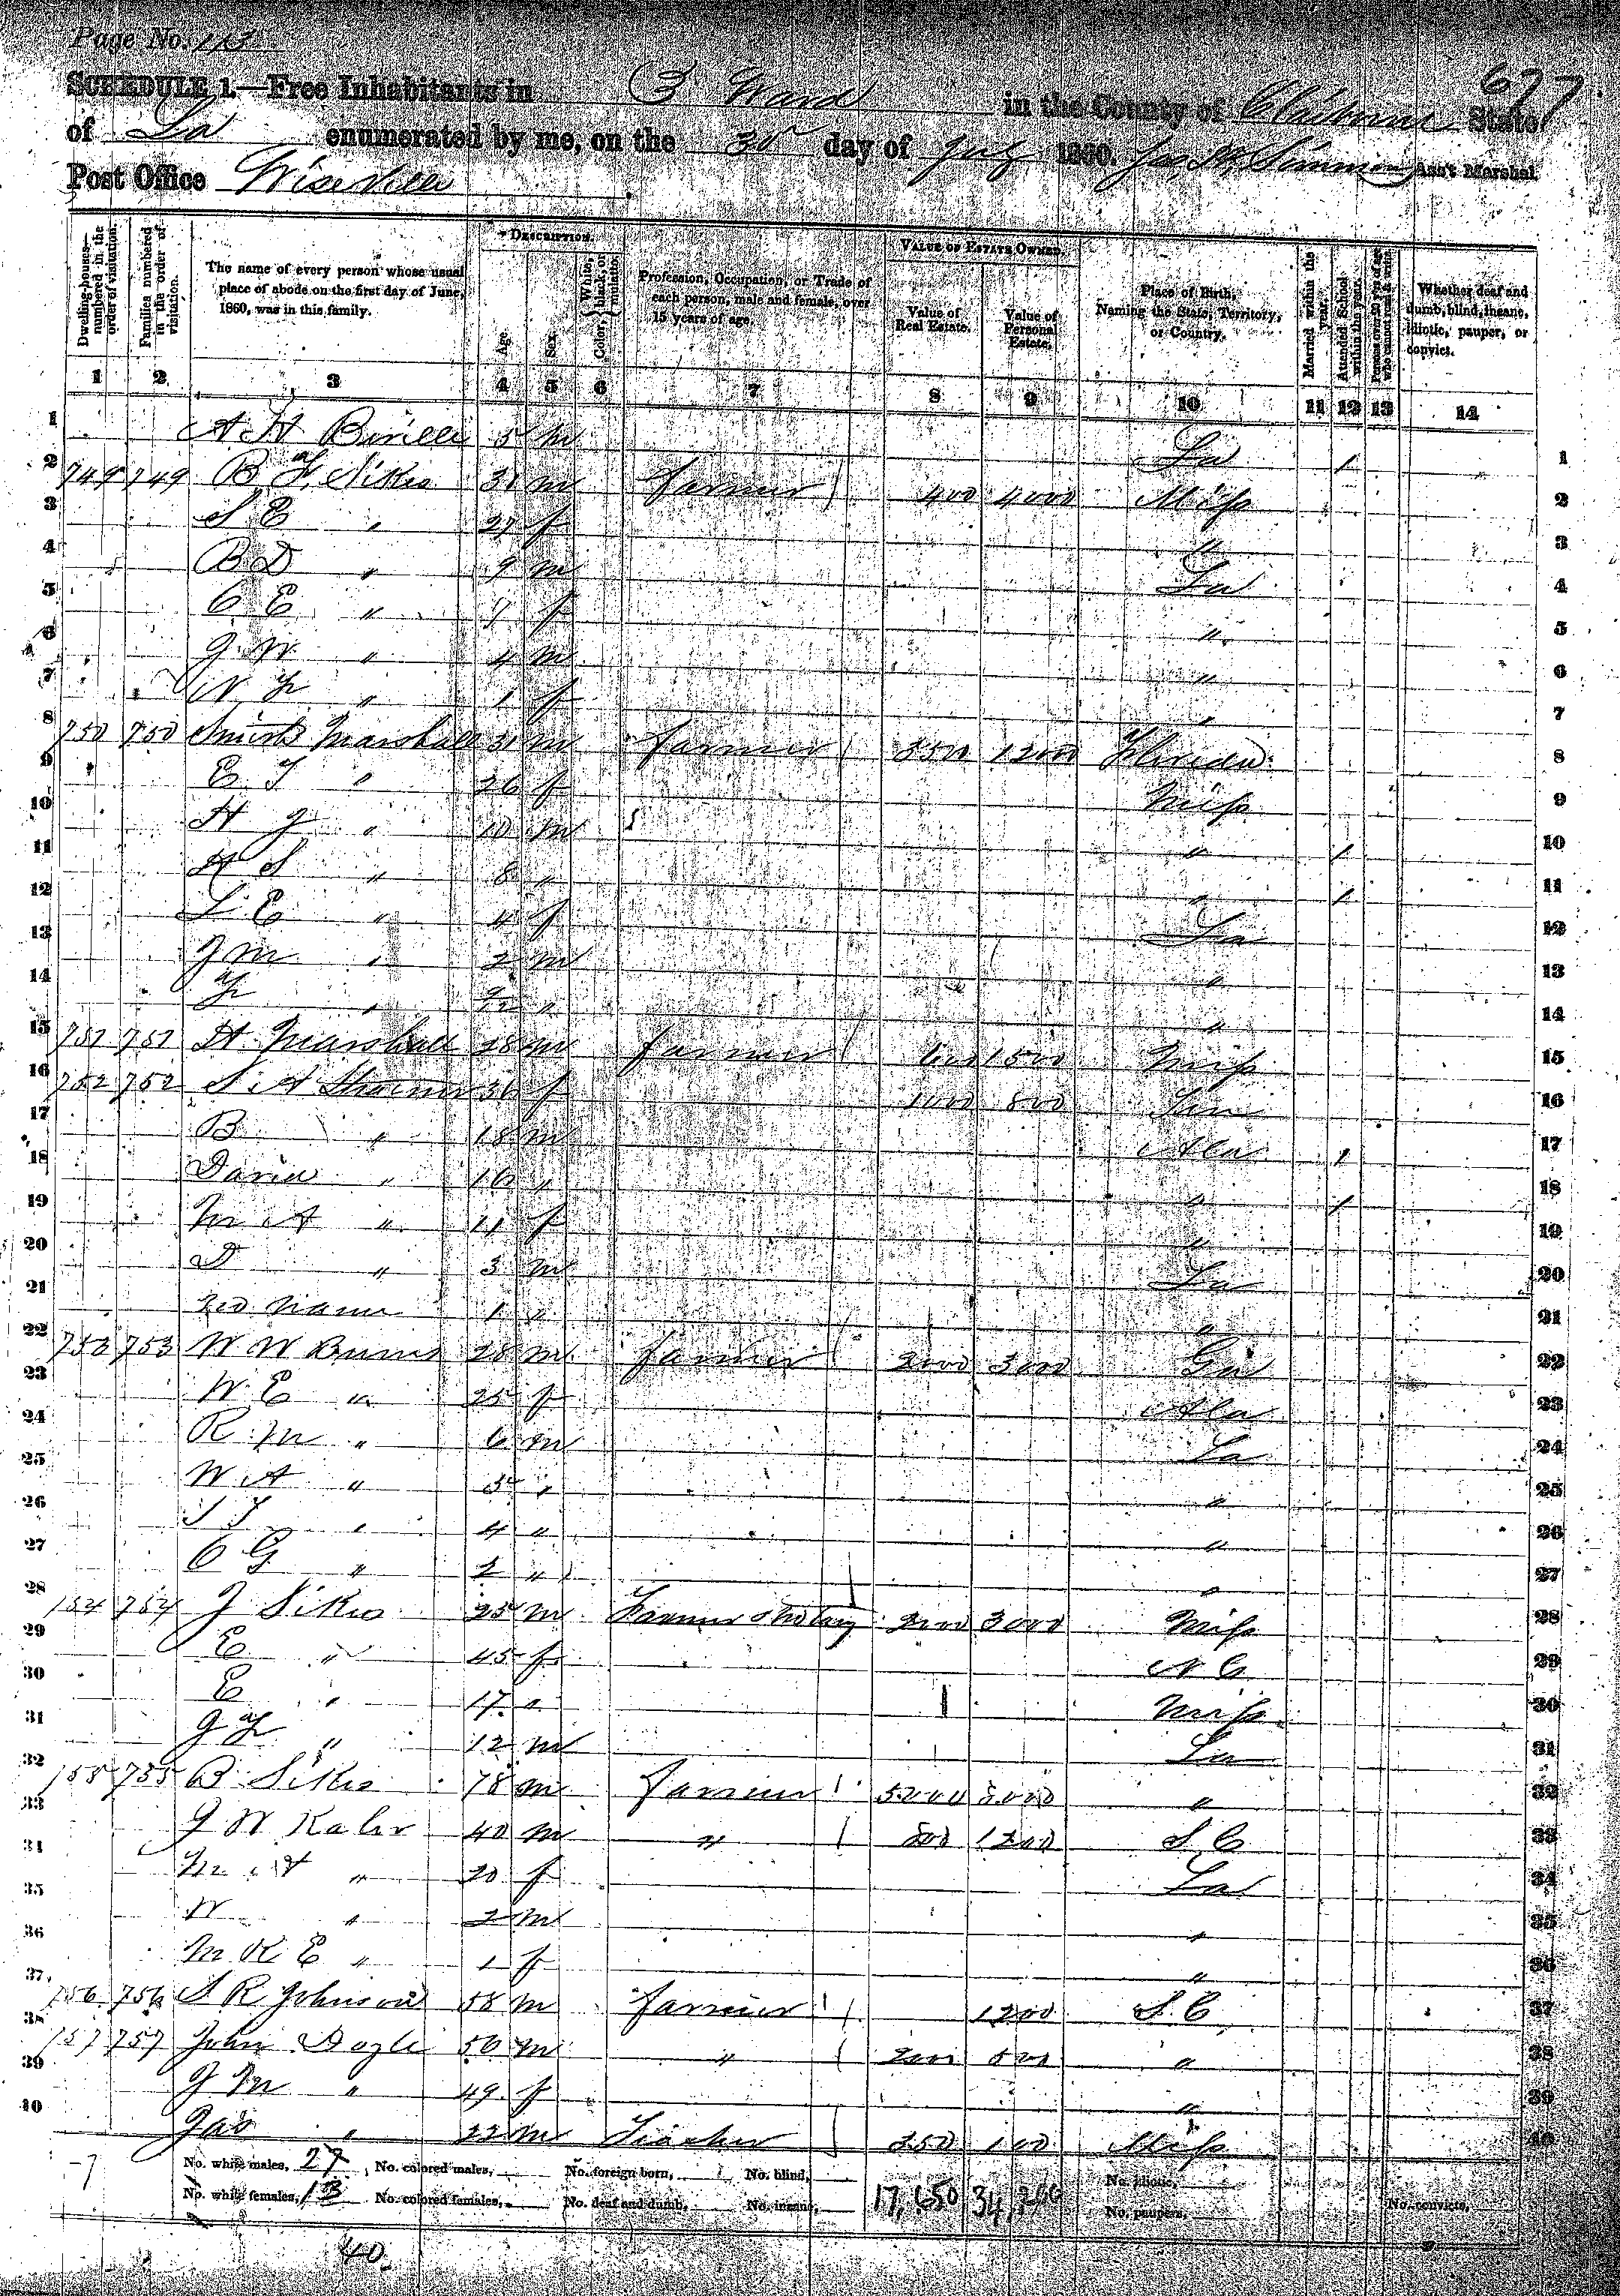 Page No. 113
677
SCHEDULE 1.—Free Inhabitants in 3 Ward in the County of Claiborne State
of La enumerated by me, on the 30 day of July 1860. Jas. M. Simmons Ass't Marshal
Post Office Wiseville
Dwelling-houses—numbered in the order of visitation.
Families numbered in the order of visitation.
The name of every person whose usual place of abode on the first day of June, 1860, was in this family.
DESCRIPTION.
Age.
Sex.
Color, { White, black, or mulatto.
Profession, Occupation, or Trade of each person, male and female, over 15 years of age.
VALUE OF ESTATE OWNED.
Value of Real Estate.
Value of Personal Estate.
Place of Birth, Naming the State, Territory, or Country.
Married within the year.
Attended School within the year.
Persons over 20 y'rs of age who cannot read & write.
Whether deaf and dumb, blind, insane, idiotic, pauper, or convict.
1 2 3 4 5 6 7 8 9 10 11 12 13 14
1 A H 5 m La / 1
2 749 749 B F Sikes 31 m farmer 400 4000 Miss 2
3 S E " 27 f " 3
4 B D " 9 m La 4
5 C E " 7 f " 5
6 G W " 4 m " 6
7 N F " 1 f " 7
8 750 750 Marshall 31 m farmer 3500 12000 Florida 8
9 E J " 26 f Miss 9
10 H J " 10 m " / 10
11 H S " 8 " " / 11
12 L E " 4 f La 12
13 J M " 2 m " 13
14 F " " " 14
15 751 751 H Marshall 28 m farmer 1500 Miss 15
16 752 752 S A 36 f 1000 800 16
17 B " 18 m Ala / 17
18 David " 16 " " / 18
19 M A " 11 f " 19
20 D " 3 m La 20
21 No name 1 " " 21
22 753 753 W W Burns 28 m farmer 2000 3000 Ga 22
23 W E " 25 f Ala 23
24 R M " 6 m La 24
25 W A " 5 " " 25
26 " 4 " " 26
27 C G " 2 " " 27
28 754 754 J Sikes 25 m Farmer 2000 3000 Miss 28
29 E " 45 f N C 29
30 E " 17 " Miss 30
31 G F " 12 m La 31
32 755 755 B Sikes 78 m farmer 5200 5000 " 32
33 J W Kaler 40 m " 500 1200 S C 33
34 M A " 20 f La 34
35 W " 2 m " 35
36 M R E " 1 f " 36
37 756 756 S R Johnson 58 m farmer 1200 S C 37
38 757 757 John Dogle 50 m " 200 500 " 38
39 J M " 49 f " 39
40 Jas " 22 m Teacher 250 100 Miss 40
No. white males, 27 No. colored males, No. foreign born, No. blind, No. idiotic,
No. white females, 13 No. colored females, No. deaf and dumb, No. insane, 17,650 34,200 No. paupers, No. convicts,
40